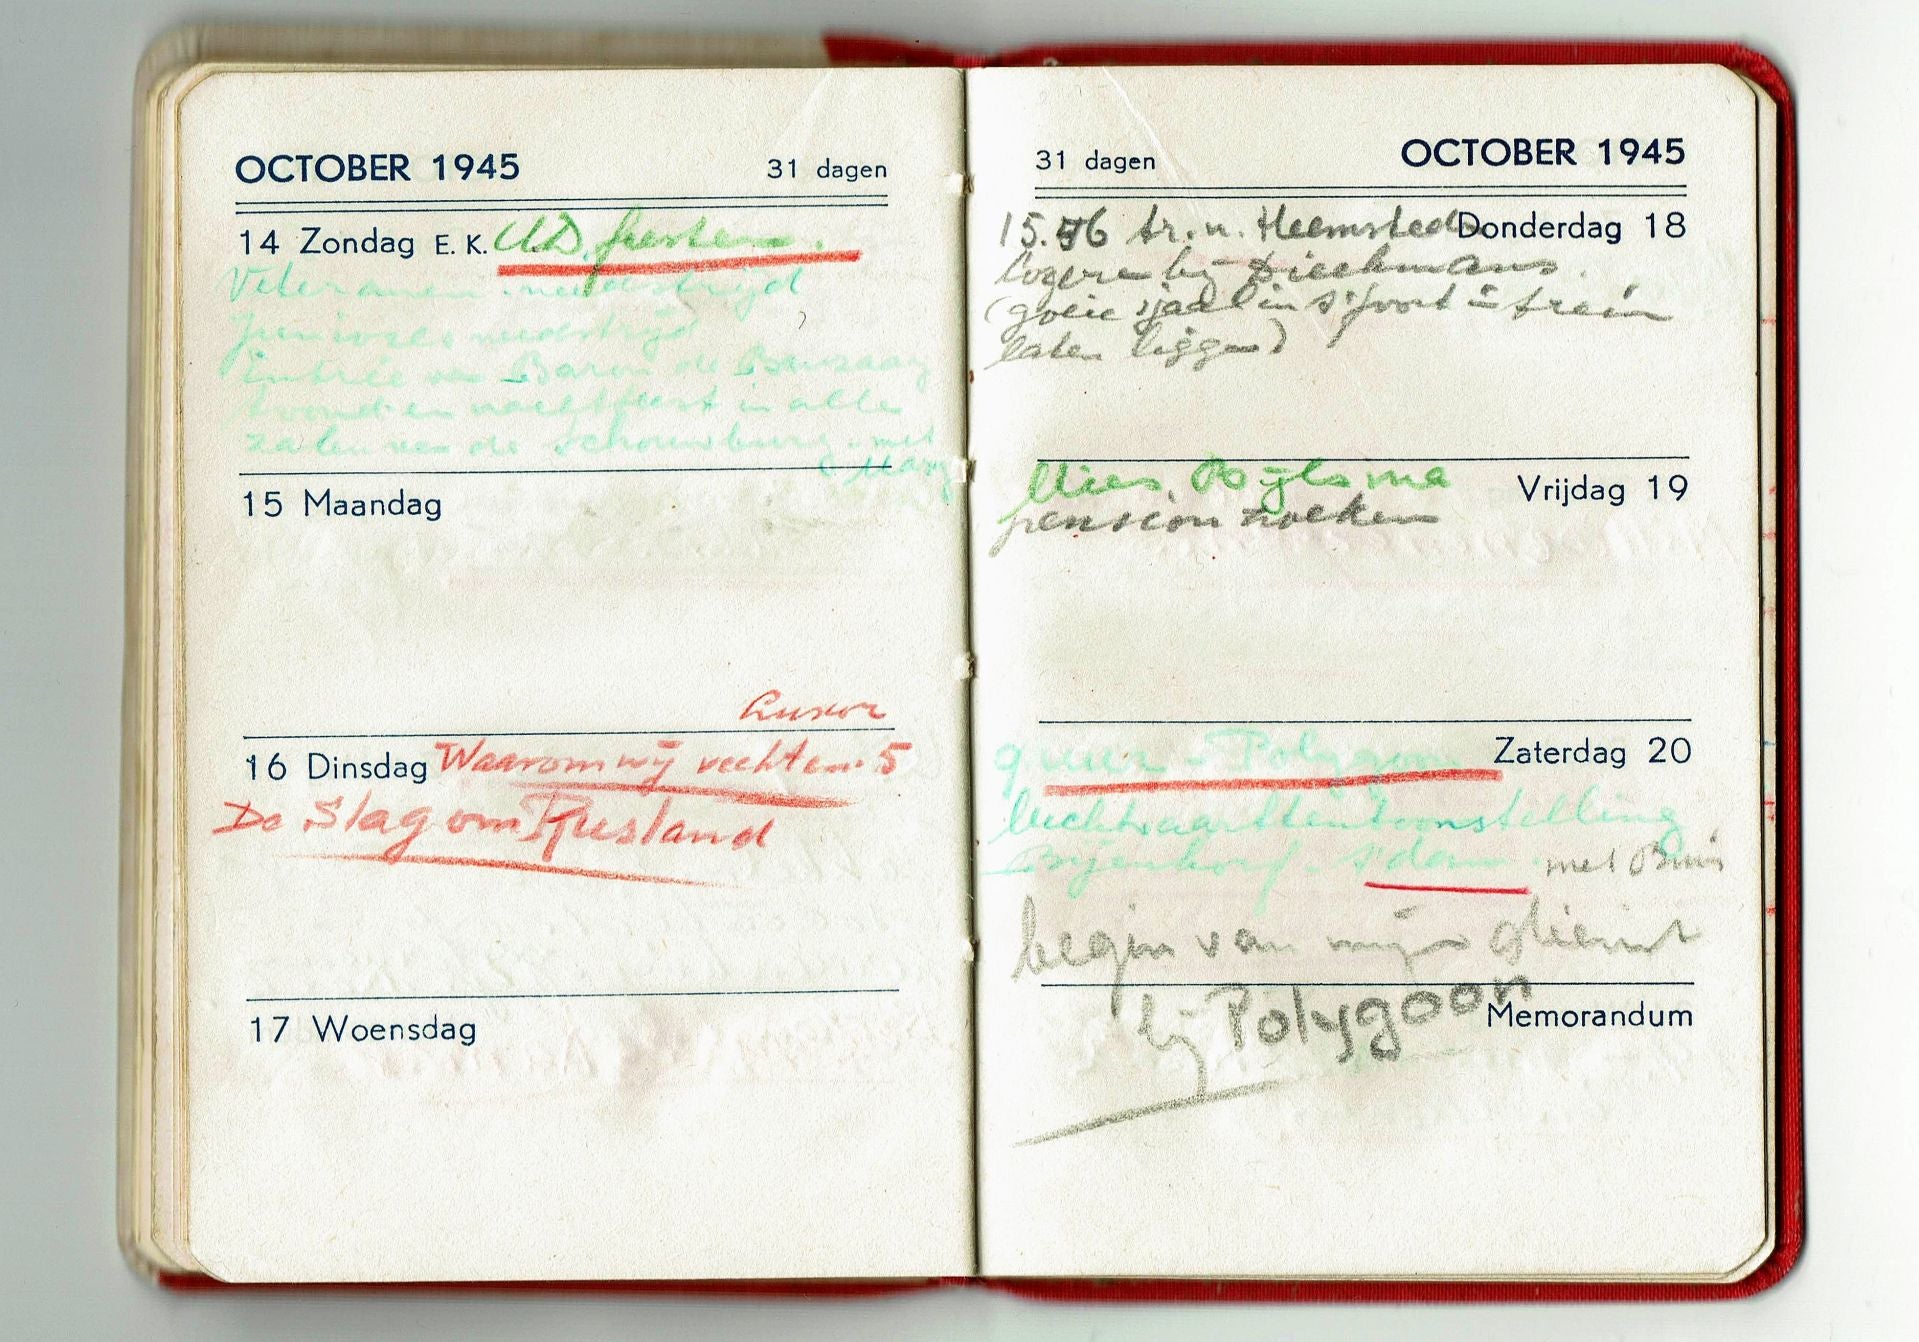 OCTOBER 1945 31 dagen
14 Zondag E. K. U.D. feesten.
Veteranen wedstrijd
Juniores wedstrijd
Entrée van Baron de
avond en nachtfeest in alle
zalen van de schouwburg met
15 Maandag
Luxor
16 Dinsdag Waarom wij vechten 5
De Slag om Rusland
17 Woensdag
31 dagen OCTOBER 1945
15.46 tr. n. Heemstede Donderdag 18
logere bij Dieckmans.
(goeie sjaal in trein
laten liggen)
Mies Bijlsma Vrijdag 19
pension zoeken
9 uur - Polygoon Zaterdag 20
luchtvaarttentoonstelling
Bijenkorf - A'dam. met
begin van mijn dienst
bij Polygoon
Memorandum